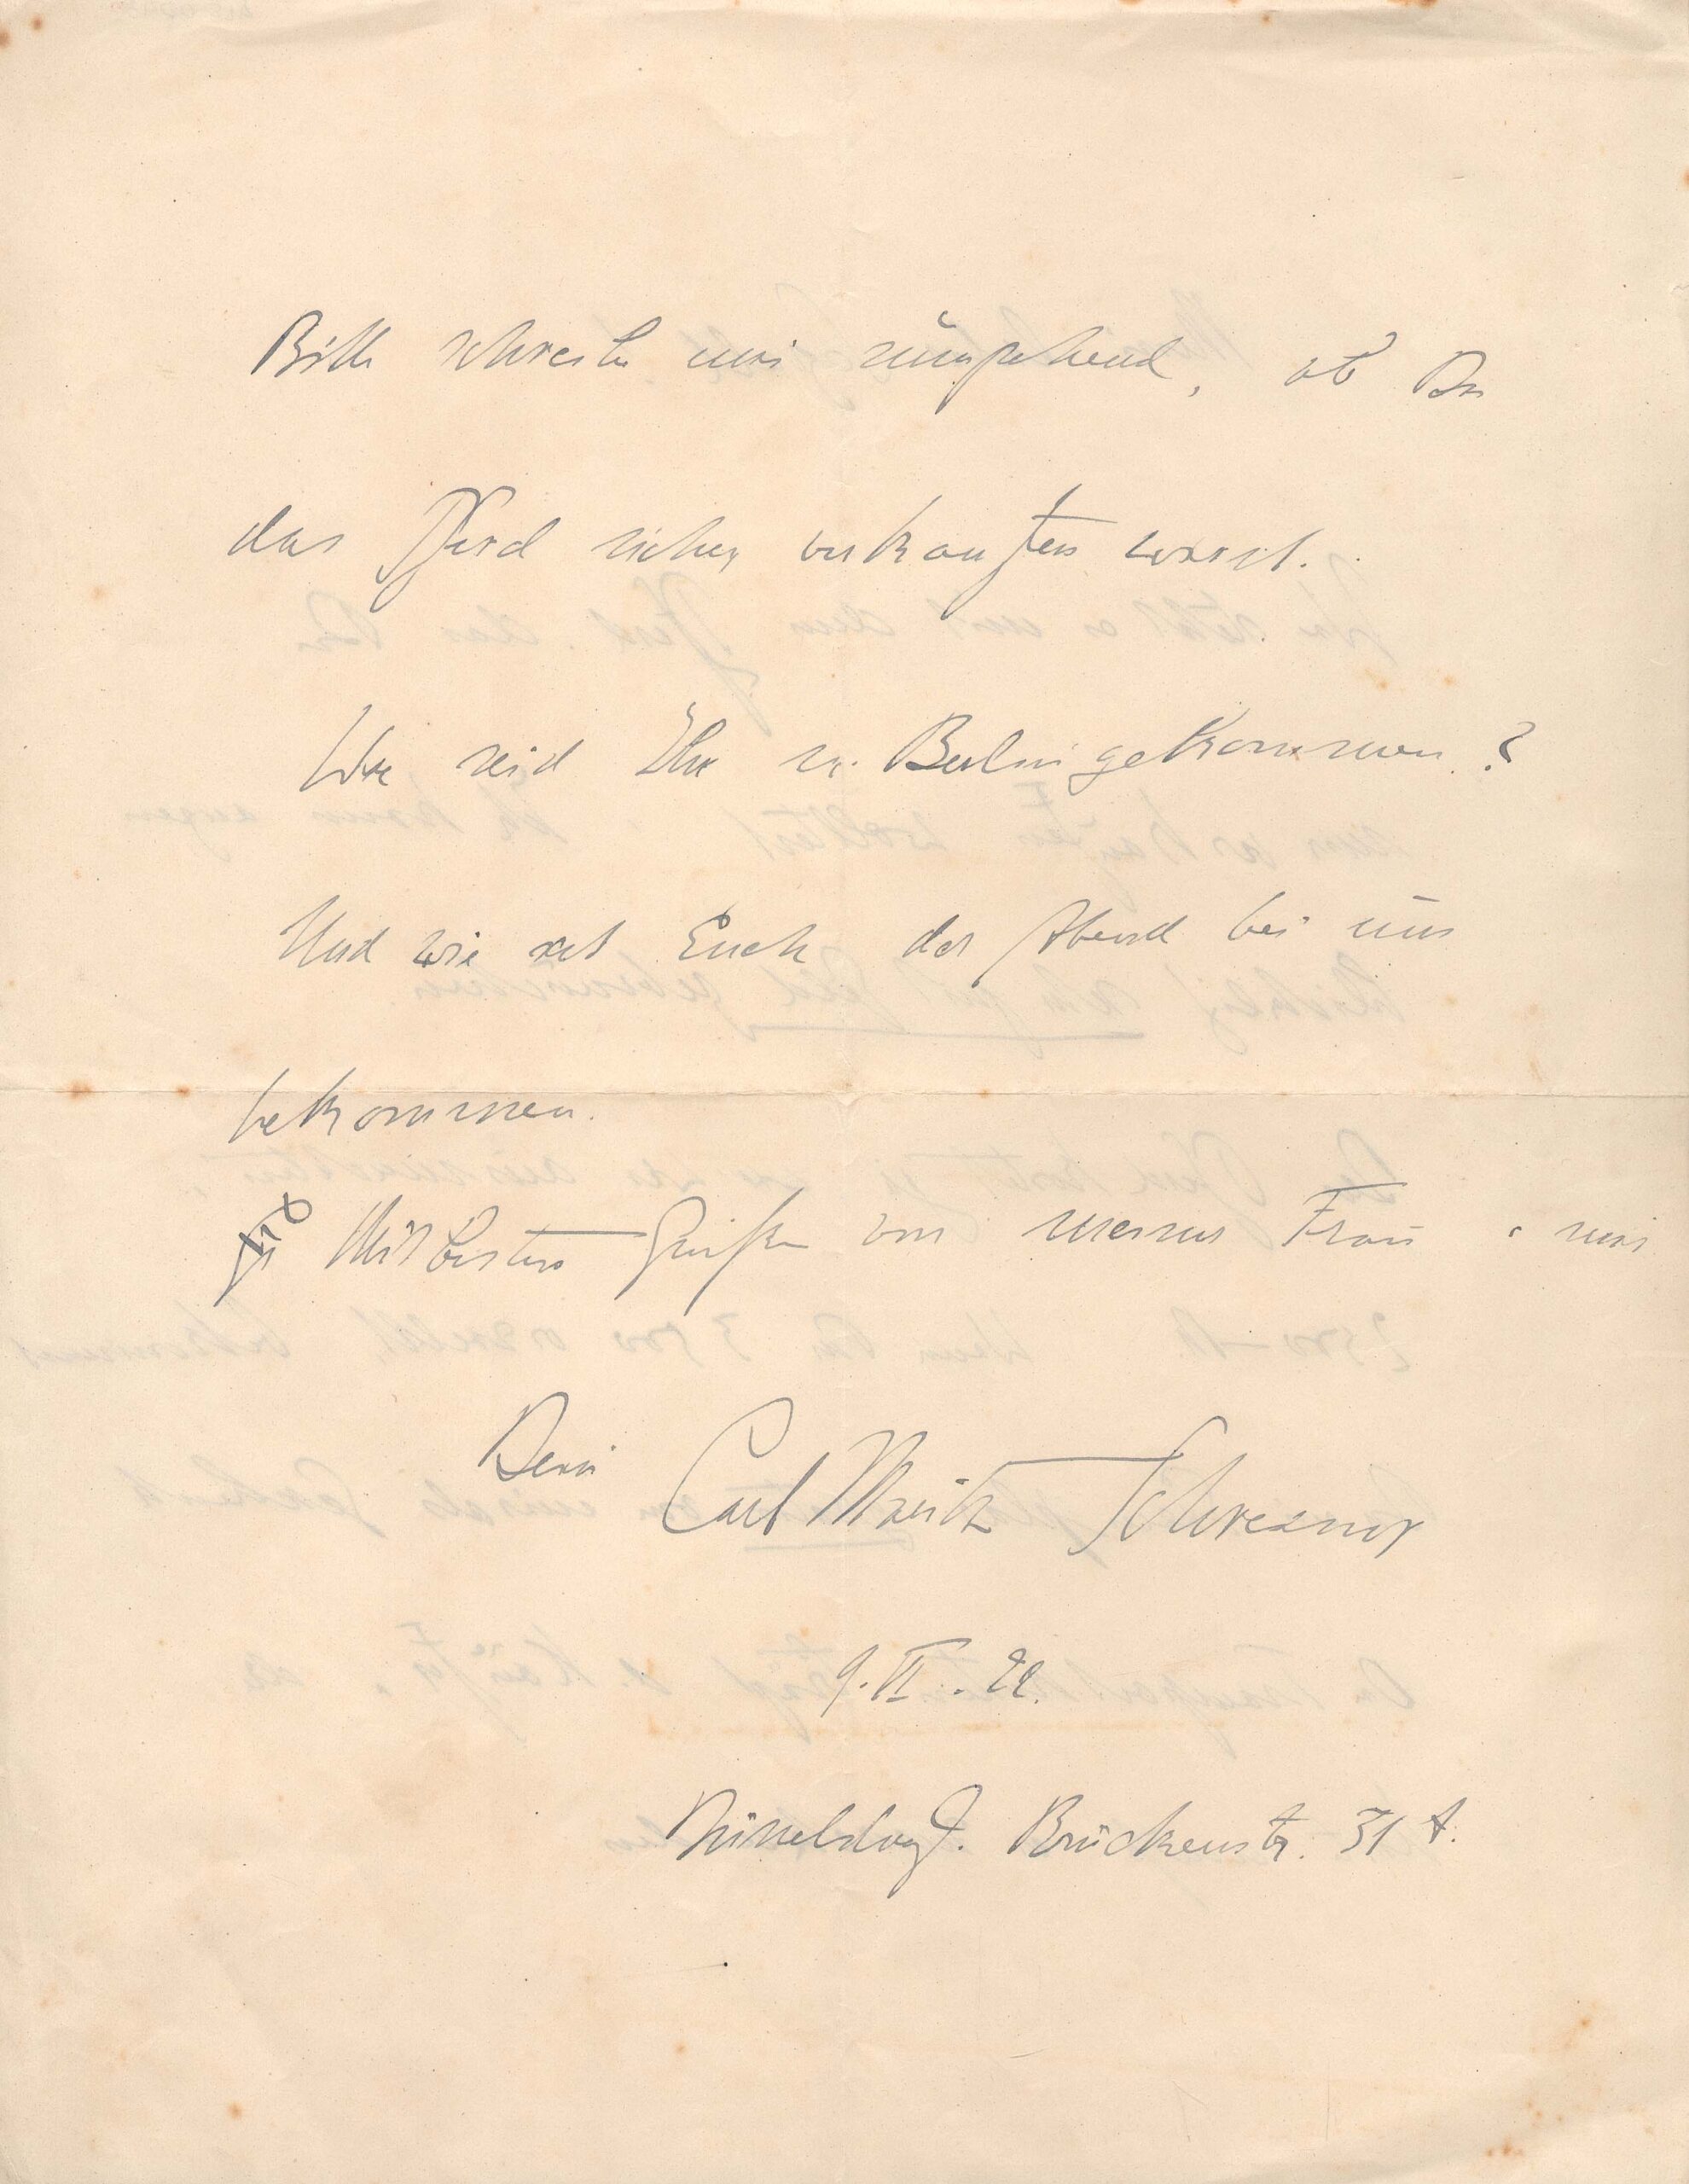 Bitte schreibe mir umgehend, ob Du
das Pferd sicher verkaufen wirst.
Wie seid Ihr n. Berlin gekommen?
Und wie ist Euch der Abend bei uns
bekommen.
Mit besten Grüßen von meiner Frau u. mir
Dein Carl Moritz Schreiner
9.VI.22.
Düsseldorf. Brückenstr. 31 A.